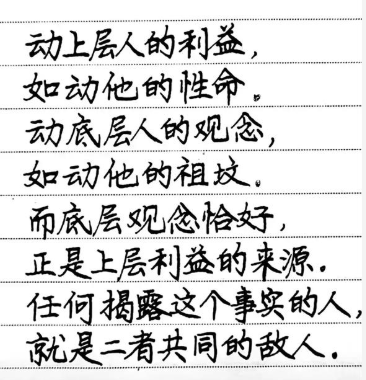 动上层人的利益,
如动他的性命。
动底层人的观念,
如动他的祖坟。
而底层观念恰好,
正是上层利益的来源.
任何揭露这个事实的人,
就是二者共同的敌人.